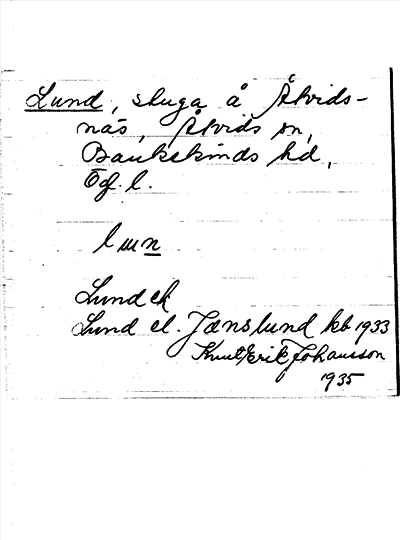 Lund, stuga å Åtvids-
näs, Åtvids sn,
Bankekinds hd,
Ög. l.
lun
Lund ek
Lund el. Jænslund kb 1933
Knut Erik Johansson
1935